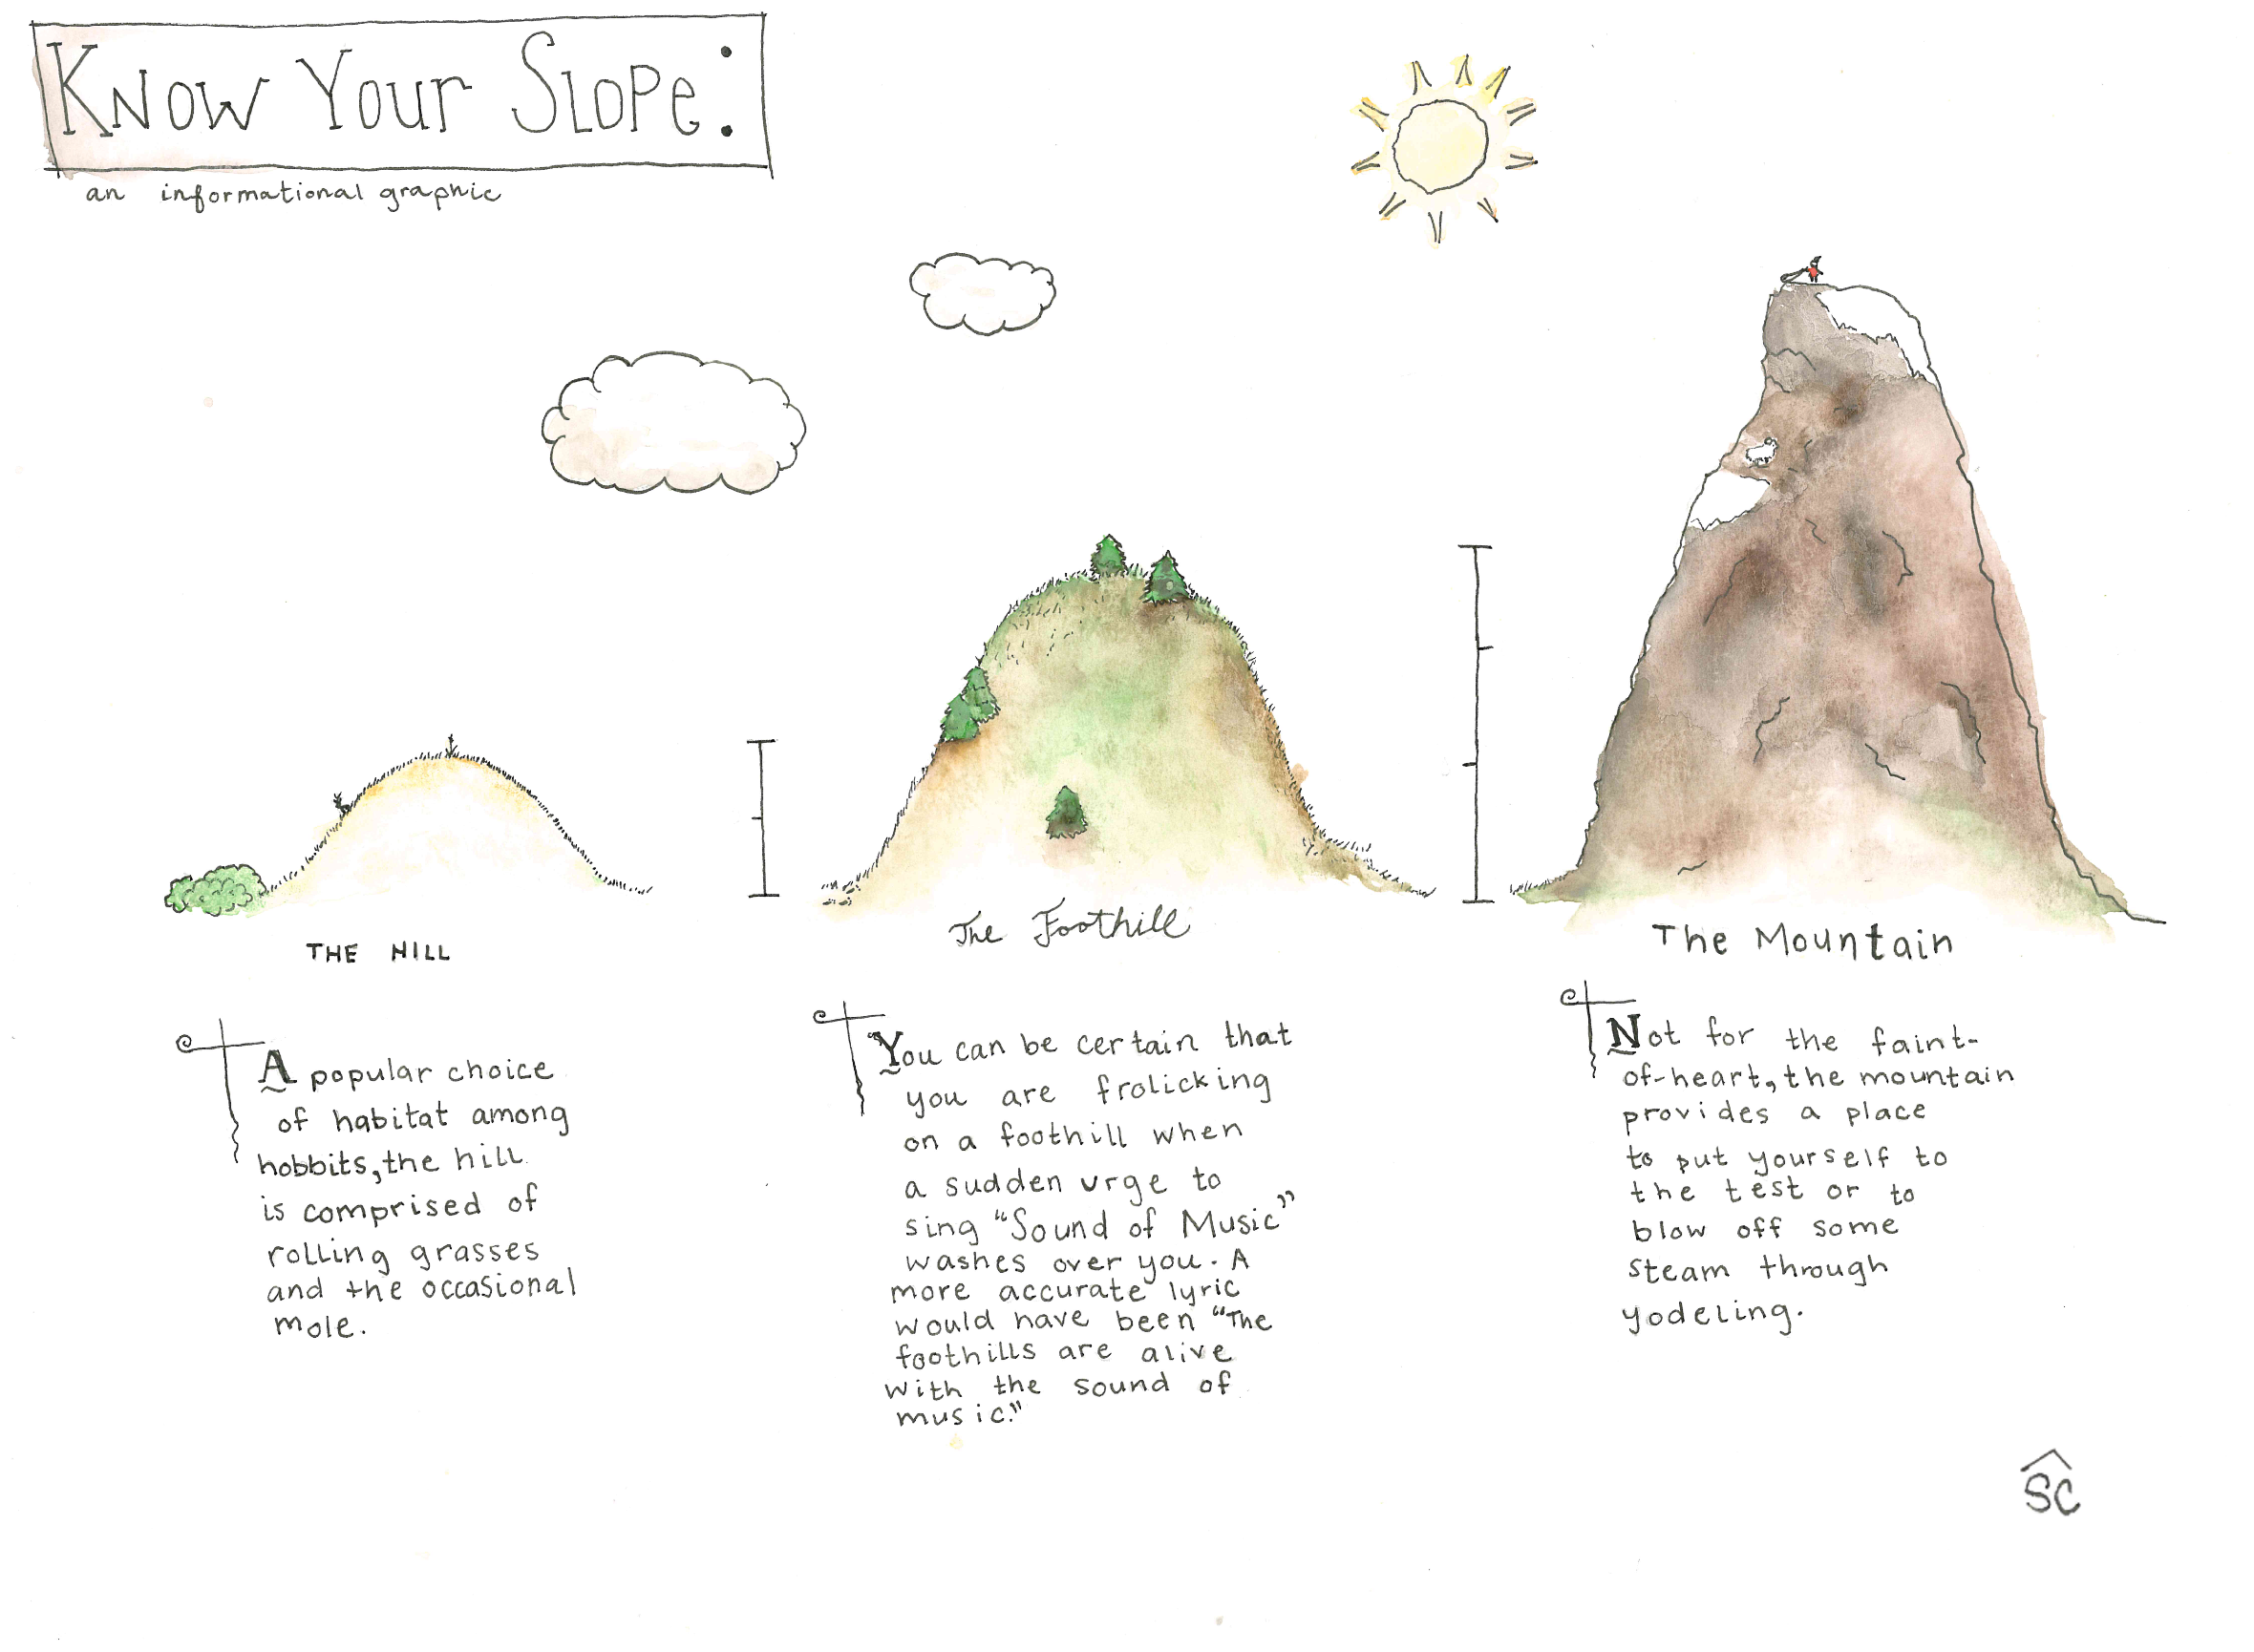 Know Your Slope:
an informational graphic
THE HILL
A popular choice
of habitat among
hobbits, the hill
is comprised of
rolling grasses
and the occasional
mole.
The Foothill
You can be certain that
you are frolicking
on a foothill when
a sudden urge to
sing "Sound of Music"
washes over you. A
more accurate lyric
would have been "The
foothills are alive
with the sound of
music."
The Mountain
Not for the faint-
of-heart, the mountain
provides a place
to put yourself to
the test or to
blow off some
steam through
yodeling.
SC